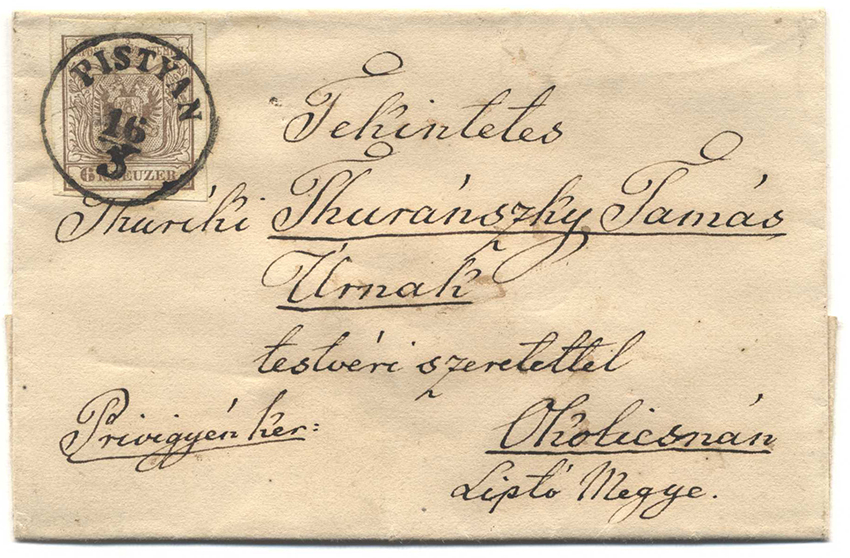 PISTYÁN
16
3
6 KREUZER
Tekintetes
Thuríki Thuránszky Tamás
Úrnak
testvéri szeretettel
Privigyén ker:
Okolicsnán
Liptó Megye.